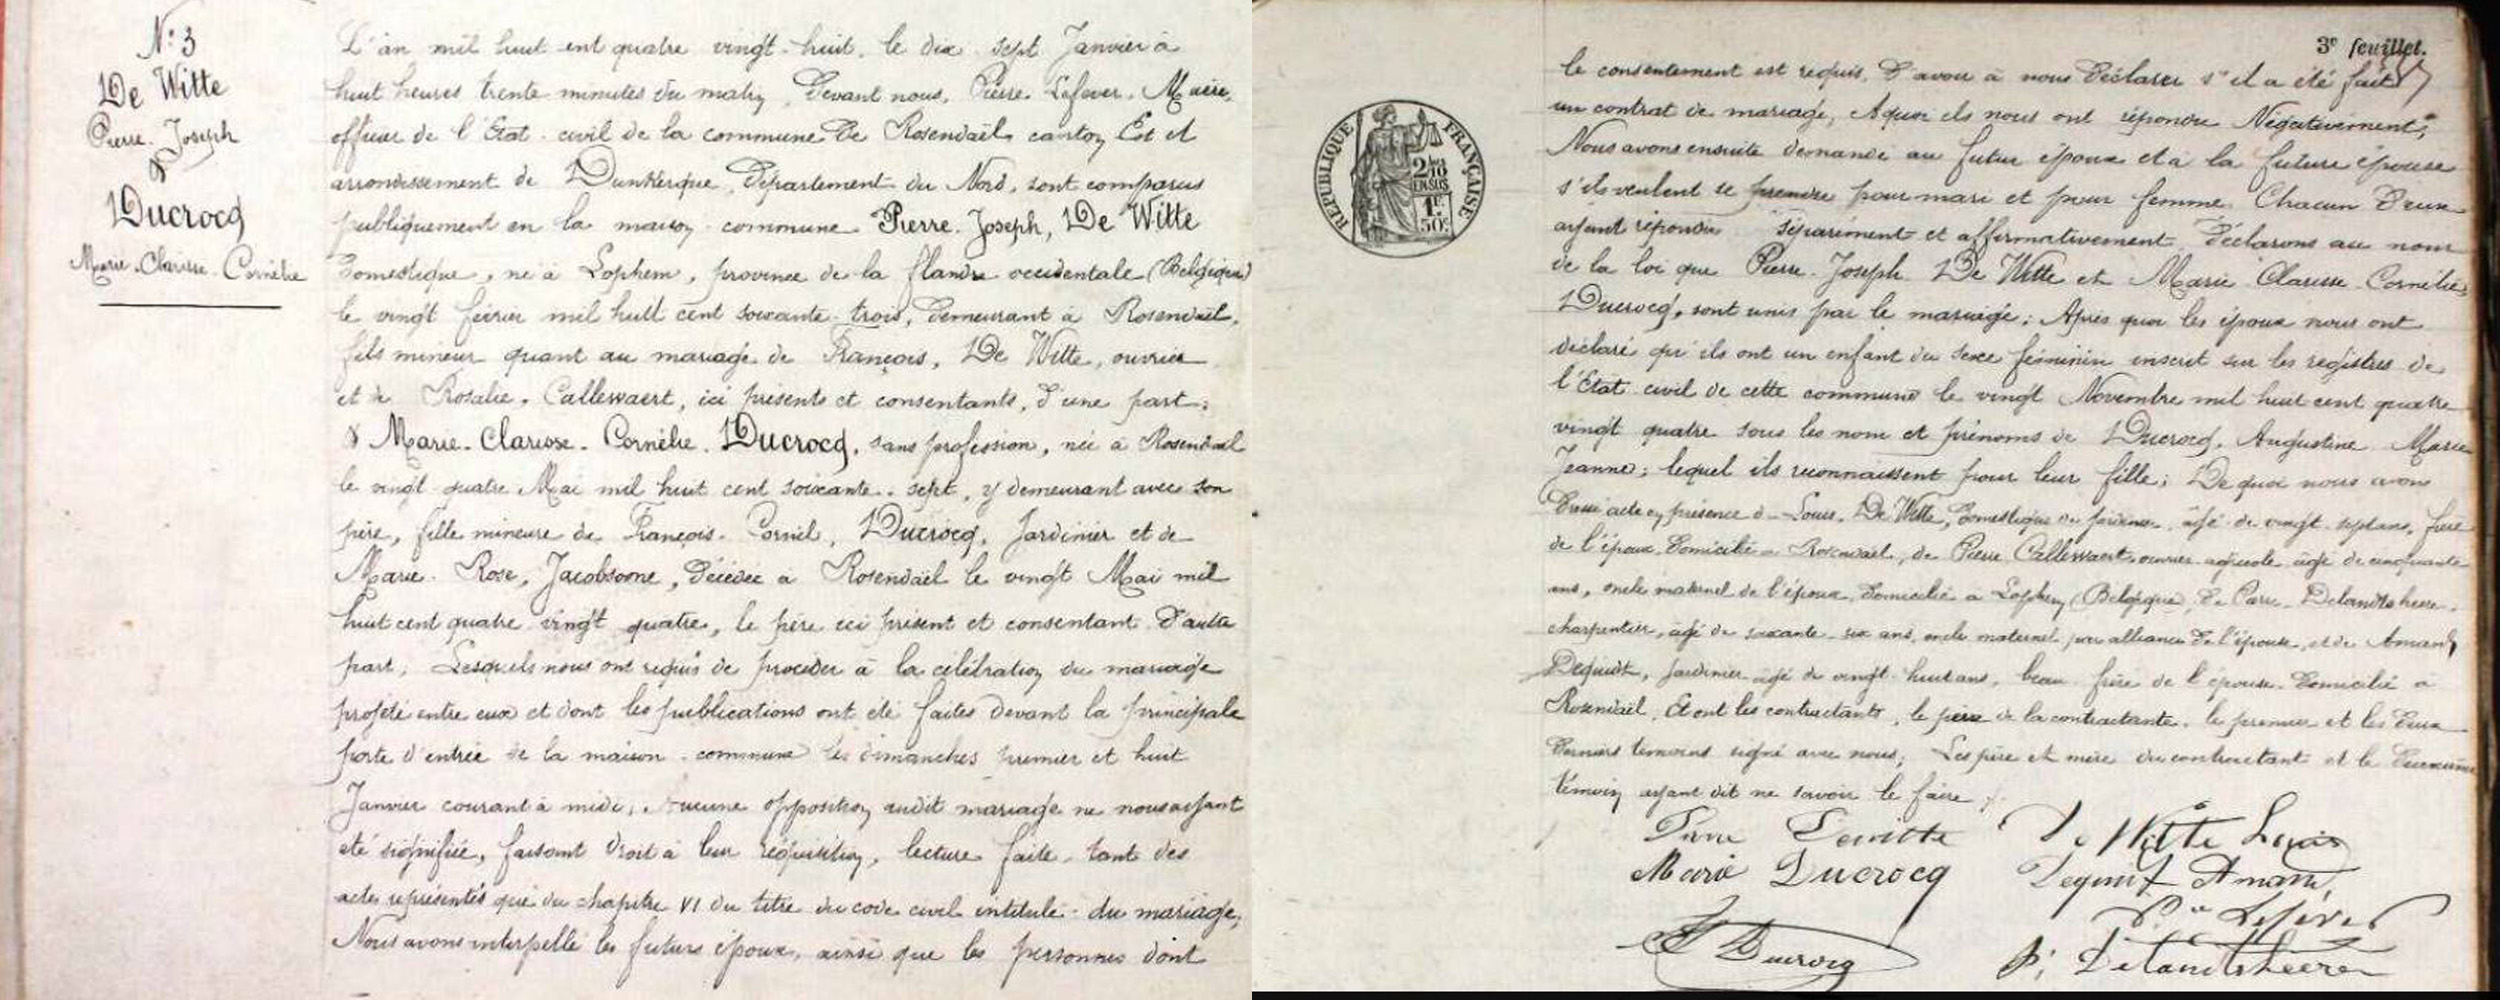 N: 3
De Witte
Pierre. Joseph
&
Ducrocq
Marie. Clarisse. Cornélie
L'an mil huit cent quatre vingt-huit, le dix sept Janvier à
huit heures trente minutes du matin, Devant nous, Pierre Lefever, Maire,
officier de l'Etat civil de la commune de Rosendaël canton Est et
arrondissement de Dunkerque, Département du Nord, sont comparus
publiquement en la maison commune Pierre. Joseph, De Witte
Domestique, né à Lophem, province de la flandre occidentale (Belgique)
le vingt février mil huit cent soixante trois, demeurant à Rosendaël,
fils mineur quant au mariage de François, De Witte, ouvrier
et de Rosalie, Callewaert, ici présents et consentants, d'une part;
& Marie. Clarisse. Cornélie. Ducrocq, sans profession, née à Rosendaël
le vingt quatre Mai mil huit cent soixante. sept, y demeurant avec son
père, fille mineure de François. Cornil, Ducrocq, Jardinier et de
Marie. Rose, Jacobsoone, Décédée à Rosendaël le vingt Mai mil
huit cent quatre vingt quatre, le père ici présent et consentant D'autre
part; Lesquels nous ont requis de procéder à la célébration du mariage
projeté entre eux et dont les publications ont été faites devant la principale
porte d'entrée de la maison commune les dimanches premier et huit
Janvier courant à midi; Aucune opposition audit mariage ne nous ayant
été signifiée, faisant Droit à leur réquisition, lecture faite tant des
actes représentés que du chapitre VI du titre du code civil intitulé du mariage,
Nous avons interpellé les futurs époux, ainsi que les personnes dont
3e feuillet.
le consentement est requis, D'avoir à nous Déclarer s'il a été fait
un contrat de mariage, A quoi ils nous ont répondu Négativement,
Nous avons ensuite demandé au futur époux et à la future épouse
s'ils veulent se prendre pour mari et pour femme. Chacun D'eux
ayant répondu séparément et affirmativement, Déclarons au nom
de la loi que Pierre. Joseph. De Witte et Marie. Clarisse. Cornélie,
Ducrocq, sont unis par le mariage; Après quoi les époux nous ont
déclaré qu'ils ont un enfant du sexe féminin inscrit sur les registres de
l'Etat civil de cette commune le vingt Novembre mil huit cent quatre
vingt quatre sous les nom et prénoms de Ducrocq, Augustine Marie
Jeanne; lequel ils reconnaissent pour leur fille; De quoi nous avons
Dressé acte en présence de Louis. De Witte, Domestique de jardinier, âgé de vingt sept ans, frère
de l'époux, Domicilié à Rosendaël, de Pierre Callewaert, ouvrier agricole âgé de cinquante
ans, oncle maternel de l'époux, Domicilié à Lophem (Belgique), de Delandtsheere,
charpentier, âgé de soixante six ans, oncle maternel par alliance de l'épouse, et de Amand
Dequidt, jardinier âgé de vingt huit ans, beau frère de l'épouse Domicilié à
Rosendaël. Et ont les contractants, le père de la contractante, le premier et les Deux
Derniers témoins signé avec nous; Les père et mère du contractant et le Deuxième
témoin ayant dit ne savoir le faire ./.
RÉPUBLIQUE FRANÇAISE
2/10
EN SUS
1F
50c
De Witte Louis
Marie Ducrocq
Dequidt Amand
Lefever
Ducrocq
Delandtsheere